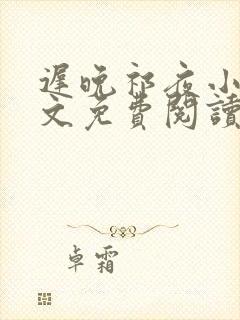 遲晚祁夜小
文免費閱讀
卓霜